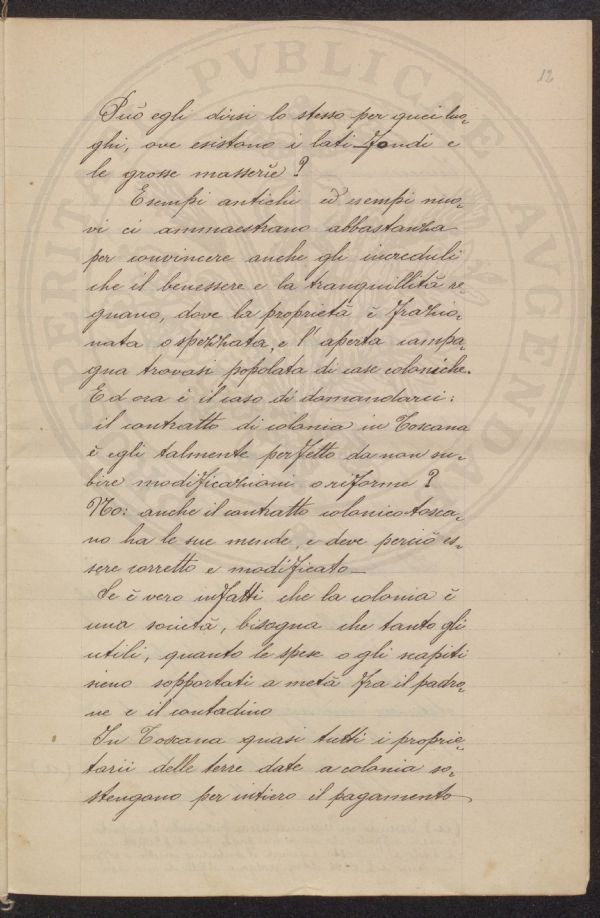 12
Può egli dirsi lo stesso per quei luo-
ghi, ove esistono i lati-fondi e
le grosse masserie?
Esempi antichi ed esempi nuo-
vi ci ammaestrano abbastanza
per convincere anche gli increduli
che il benessere e la tranquillità re-
gnano, dove la proprietà è frazio-
nata o spezzata, e l'aperta campa-
gna trovasi popolata di case coloniche.
Ed ora è il caso di domandarci:
il contratto di colonia in Toscana
è egli talmente perfetto da non su-
bire modificazioni o riforme?
No: anche il contratto colonico tosca-
no ha le sue mende, e deve perciò es-
sere corretto e modificato_
Se è vero infatti che la colonia è
una società, bisogna che tanto gli
utili, quanto le spese o gli scapiti
sieno sopportati a metà fra il padro-
ne e il contadino
In Toscana quasi tutti i proprie-
tarii delle terre date a colonia so-
stengano per intiero il pagamento
PVBLICAE
AVGENDAE
PROSPERITATI